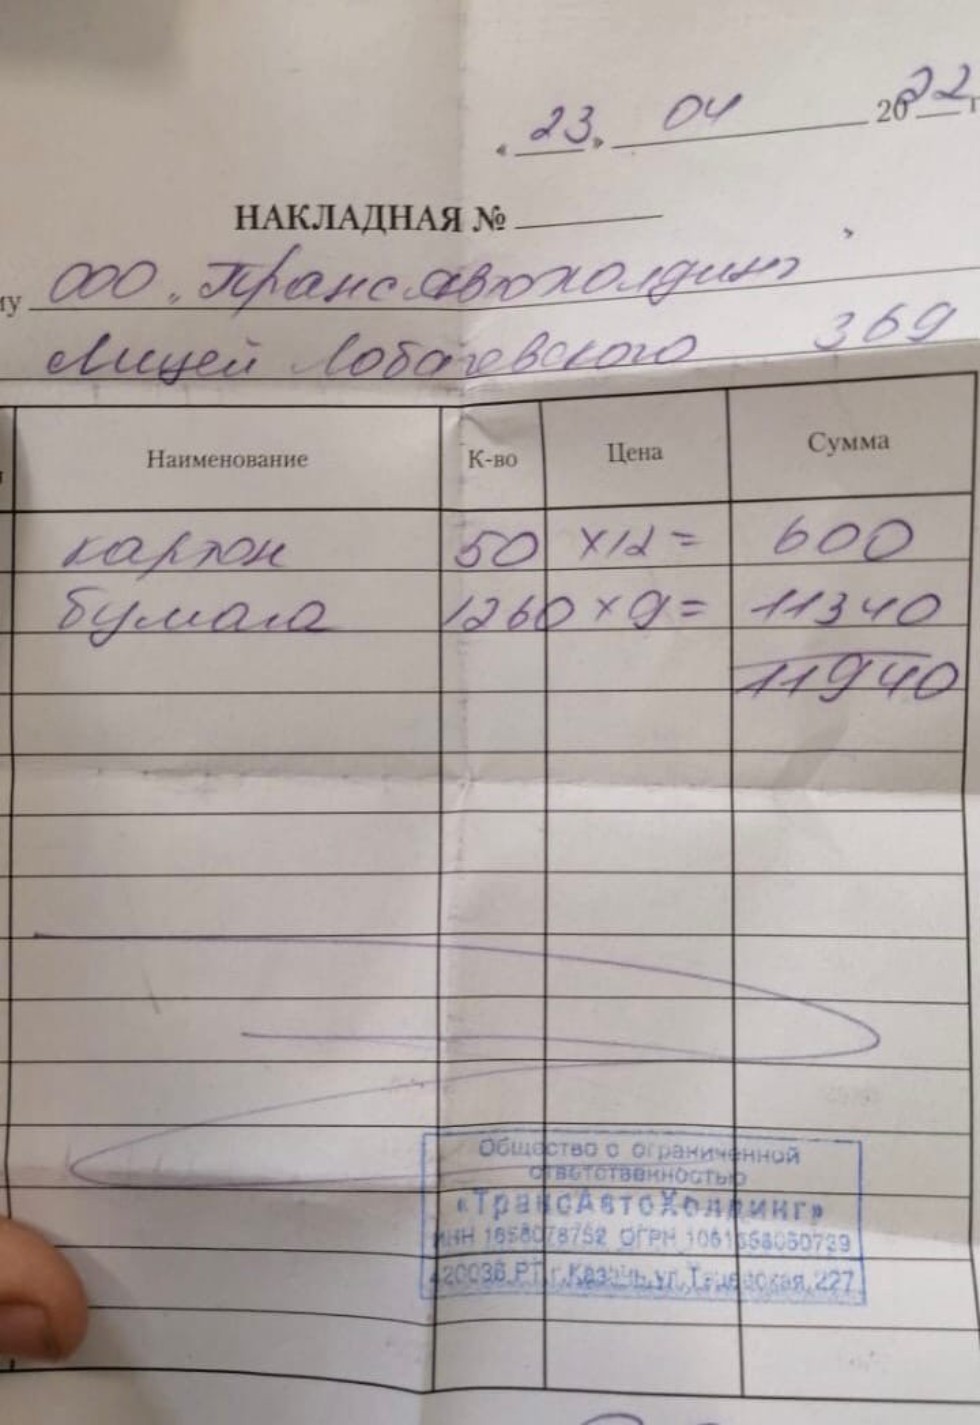 « 23 » 04 2022 г
НАКЛАДНАЯ №
му ООО „Трансавтохолдинг"
Лицей Лобачевского 369
Наименование К-во Цена Сумма
картон 50 х12= 600
бумага 1260 х9= 11340
11940
Общество с ограниченной
ответственностью
«ТрансАвтоХолдинг»
ИНН 1658078752 ОГРН 1061658050739
420036,РТ,г.Казань,ул.Тэцевская,227